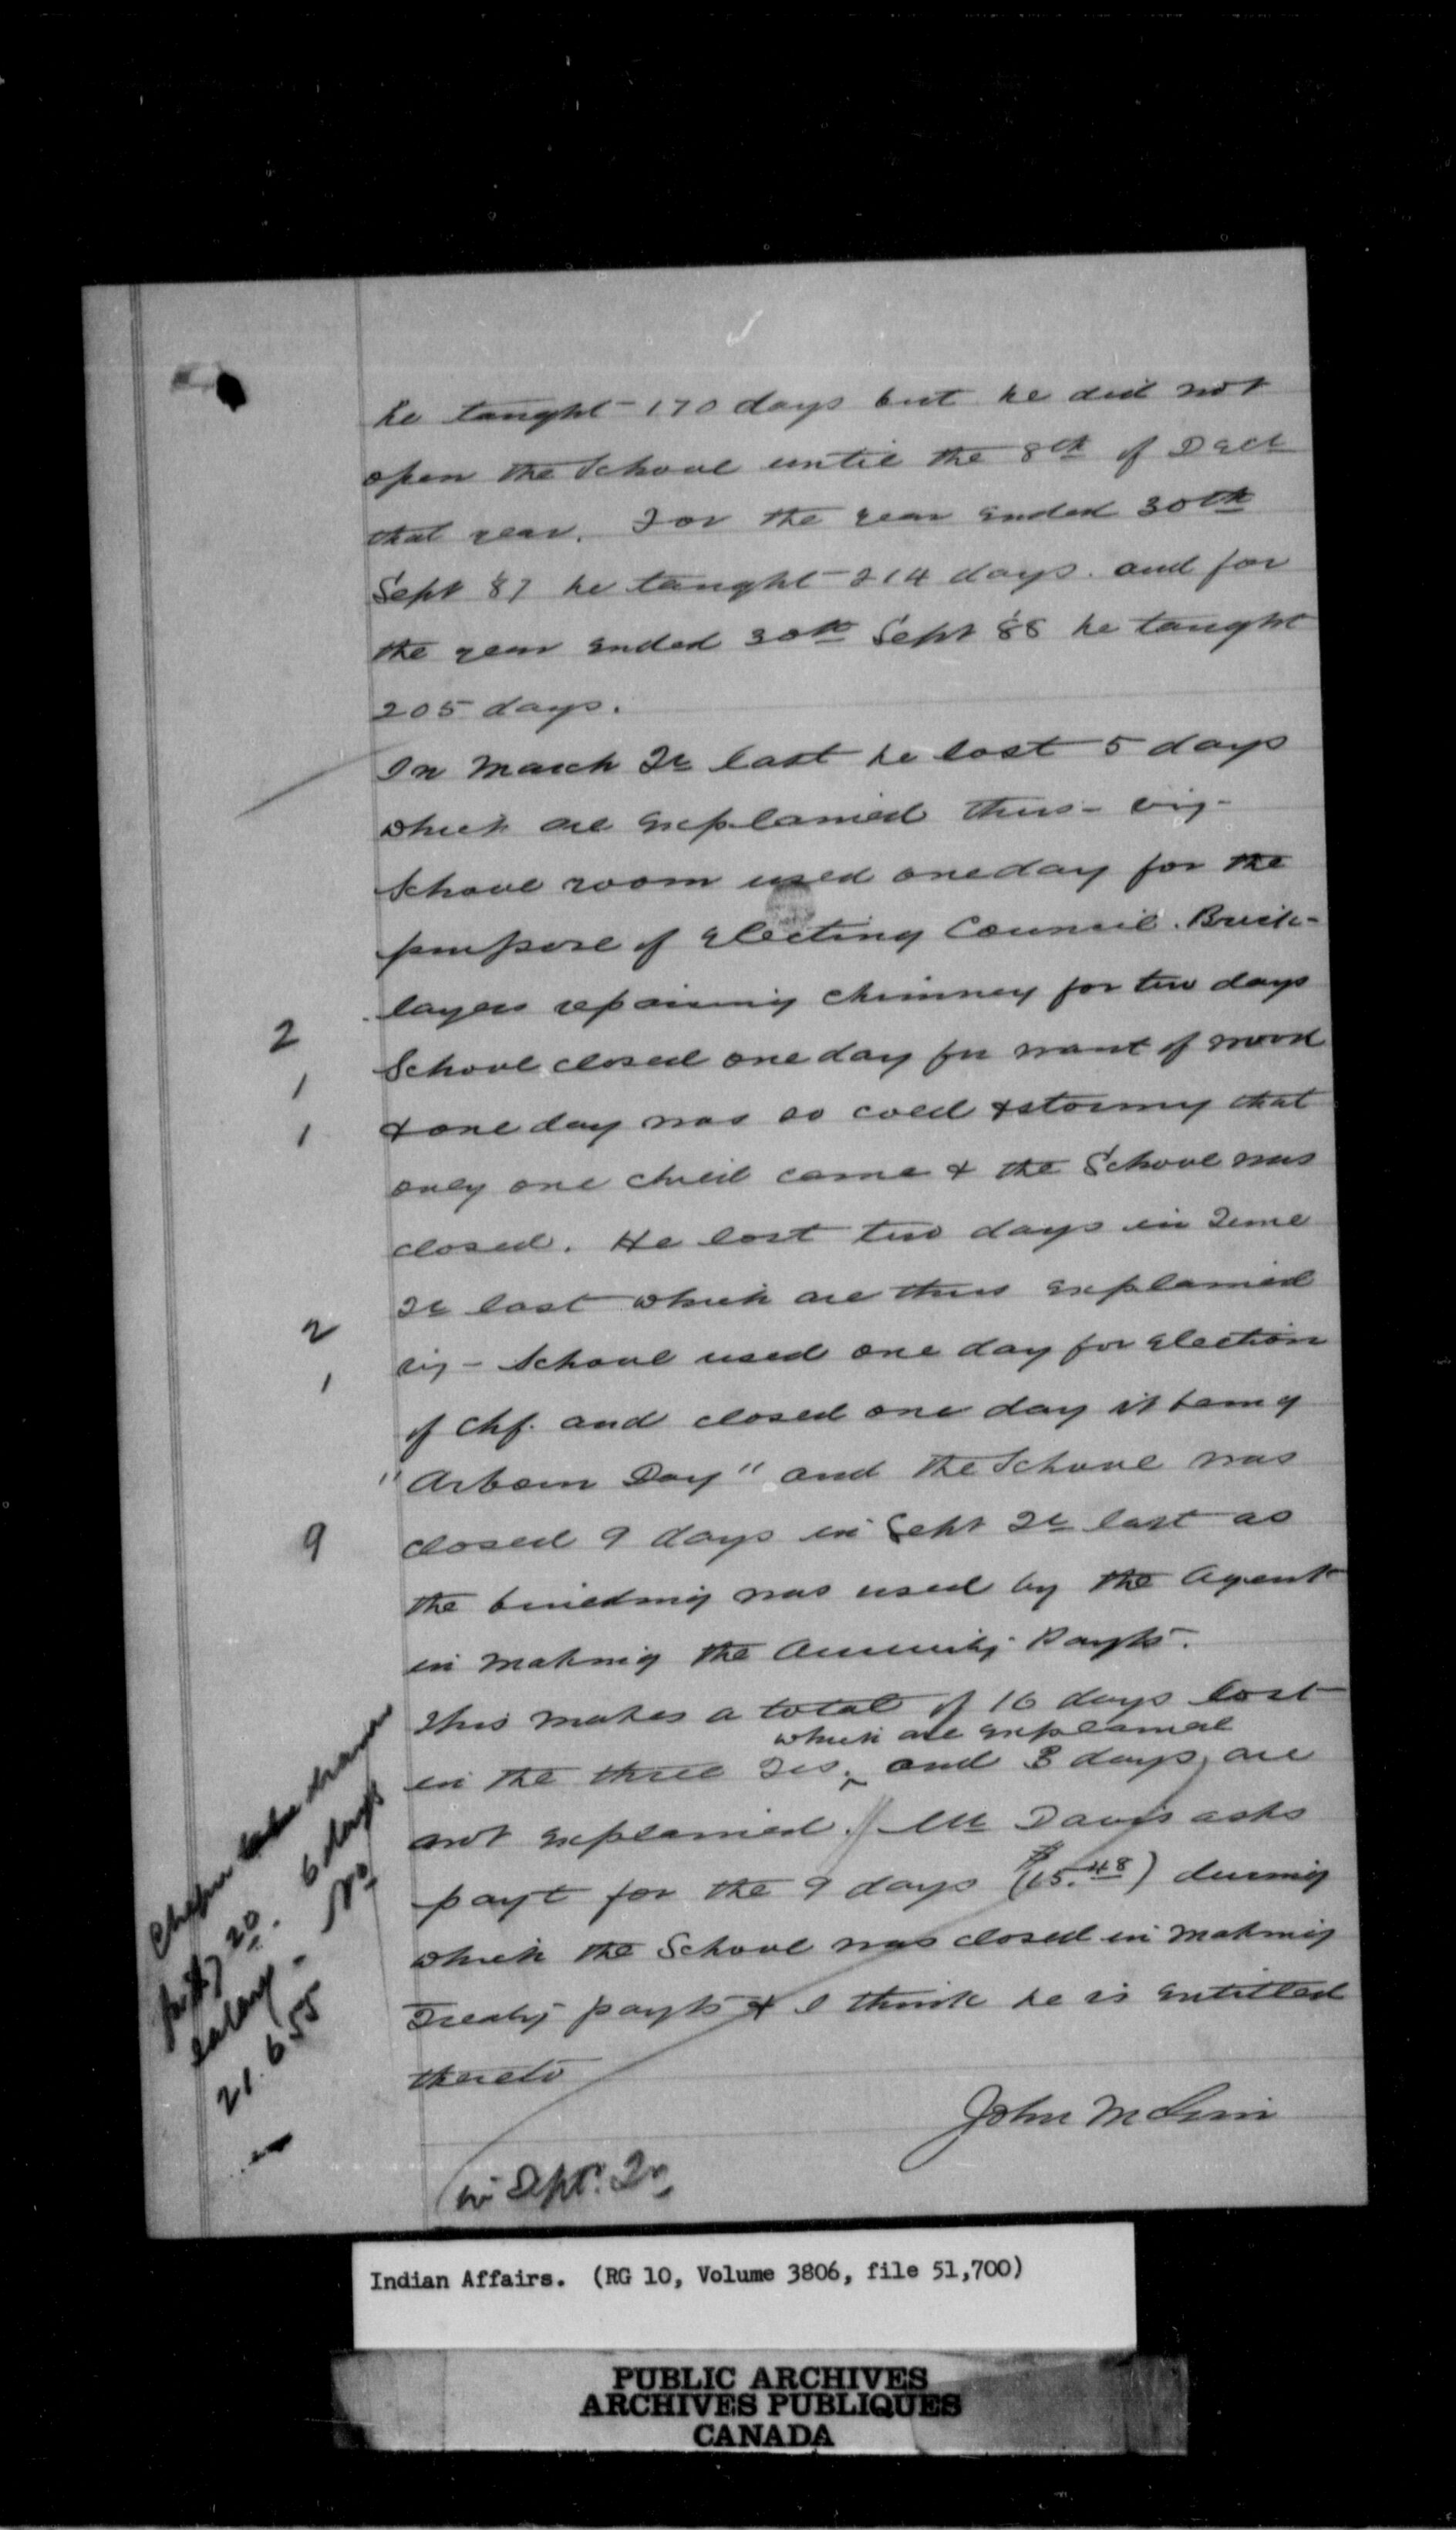 he taught 170 days but he did not
open the School until the 8th of Dec
that year. For the year ended 30th
Sept 87 he taught 214 days. and for
the year ended 30th Sept '88 he taught
205 days.
In March Qr last he lost 5 days
which are explained thus - viz -
School room used one day for the
purpose of electing Council. Brick-
layers repairing chimney for two days
2
School closed one day for want of wood
1
& one day was so cold & stormy that
1
only one child came & the School was
closed. He lost two days in June
Qr last which are thus explained
2
viz - School used one day for election
1
of Chf. and closed one day it being
"Arbour Day" and the School was
closed 9 days in Sept Qr last as
9
the building was used by the Agent
in making the Annuity Payts.
This makes a total of 16 days lost
which are explained
in the three Qrs. and 3 days are
not explained. // Mr Davis asks
payt for the 9 days ($15.48) during
which the School was closed in making
Treaty payts & I think he is entitled
thereto
John McGirr
in Sept. Qr
20. 6 days
salary - No
21.655
Indian Affairs. (RG 10, Volume 3806, file 51,700)
PUBLIC ARCHIVES
ARCHIVES PUBLIQUES
CANADA